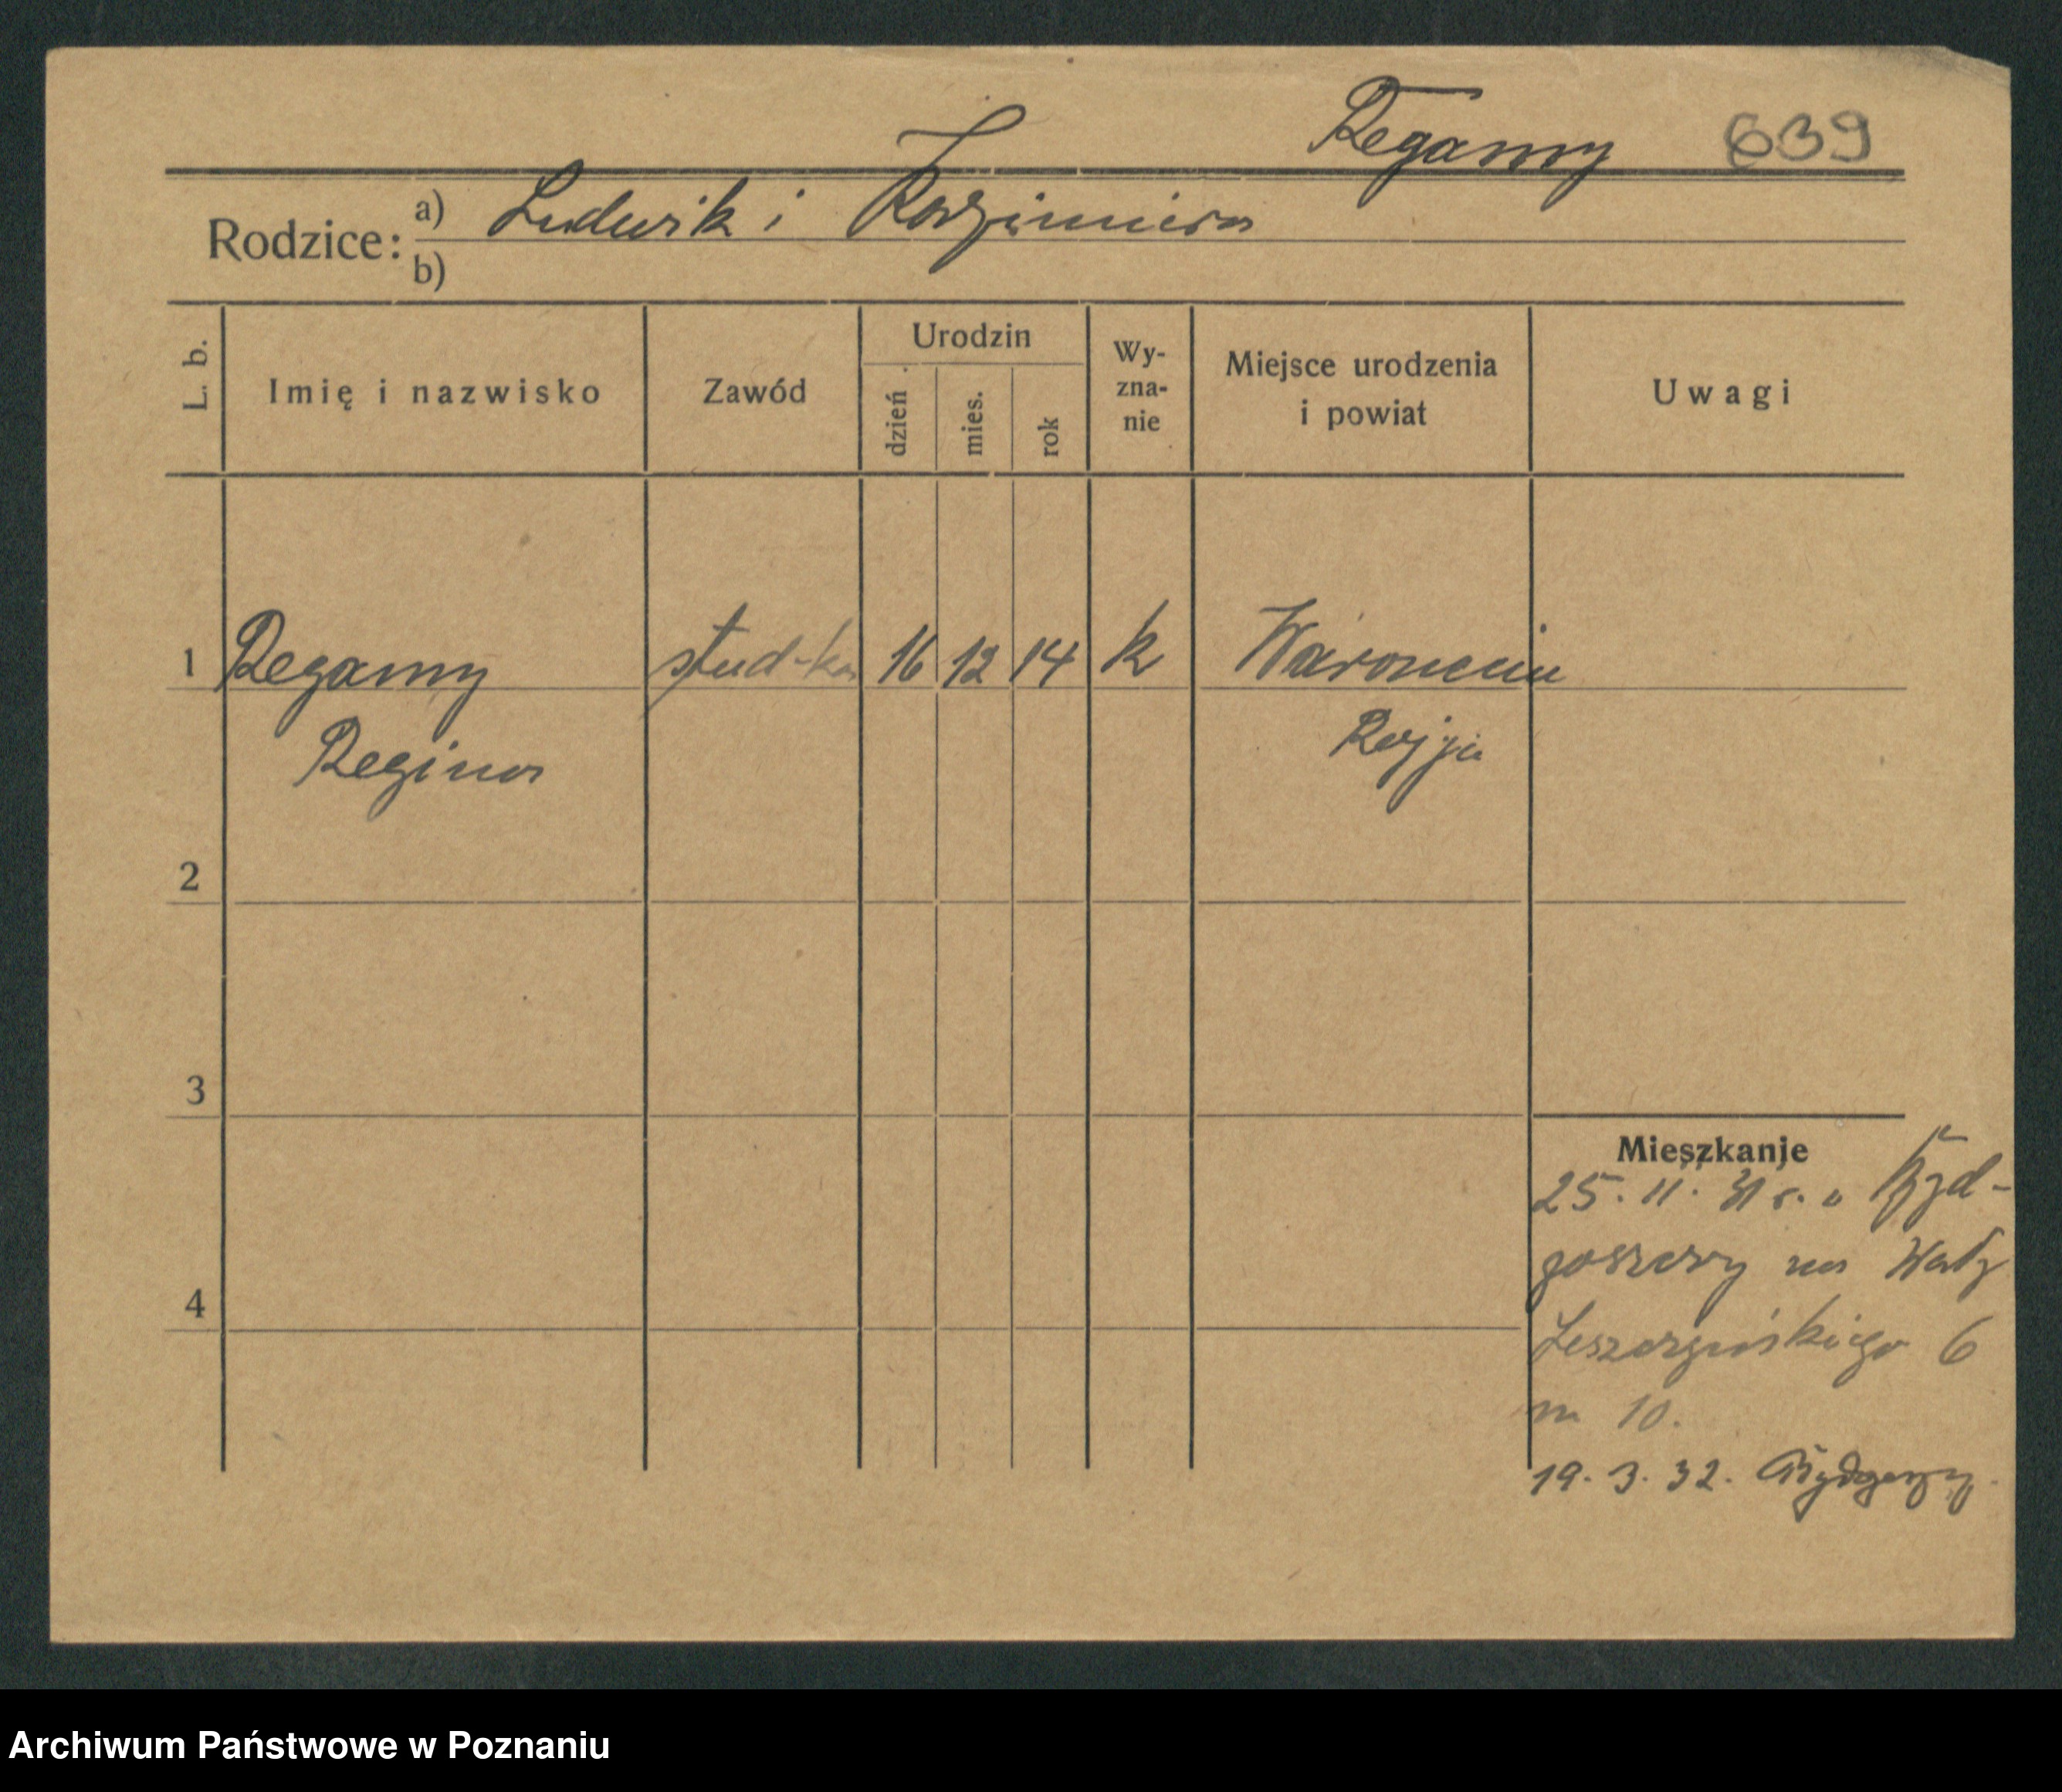 Regamy 639
Rodzice: a) Ludwik i Kazimiera
b)
L. b. Imię i nazwisko Zawód Urodzin dzień mies. rok Wy-zna-nie Miejsce urodzenia i powiat Uwagi
1 Regamy stud-ka 16 12 14 k
Regina Rosja
2
3
4
Mieszkanie
25. 11. 31 r. z Byd-
goszczy na Wały
Leszczyńskiego 6
m 10.
19. 3. 32. Bydgoszcz
Archiwum Państwowe w Poznaniu